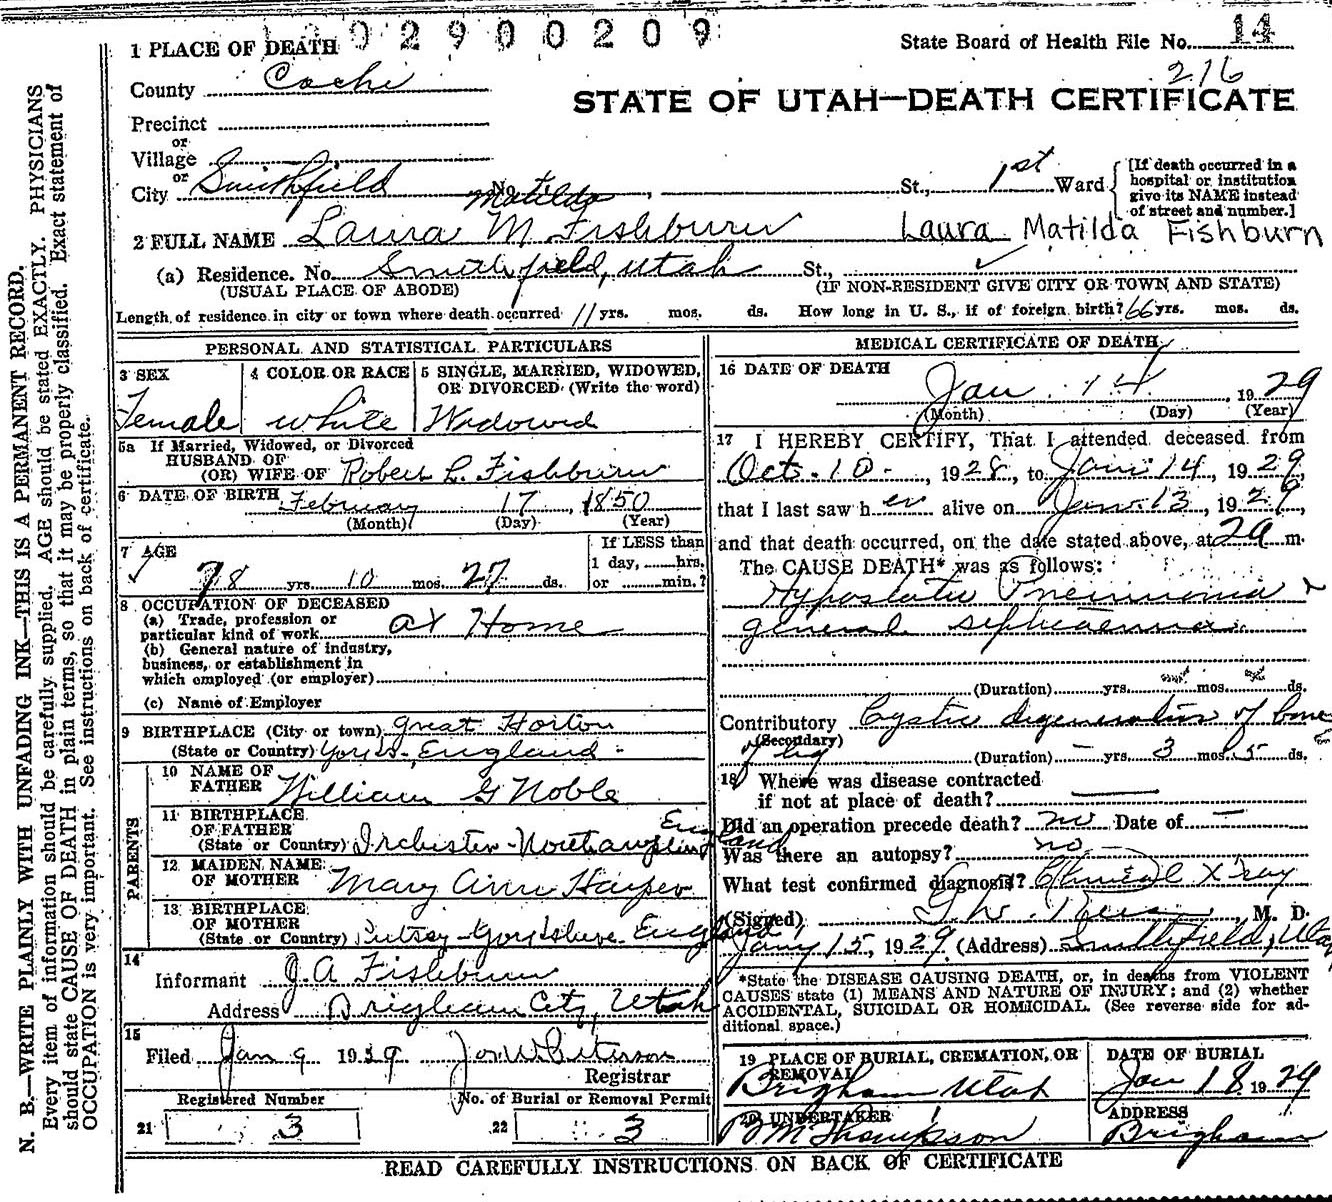 02900209
1 PLACE OF DEATH
State Board of Health File No. 14
216
County Cache
STATE OF UTAH—DEATH CERTIFICATE
Precinct
or
Village
or
City Smithfield No. , St., 1st Ward
[If death occurred in a hospital or institution give its NAME instead of street and number.]
Matilda
2 FULL NAME Laura M Fishburn Laura Matilda Fishburn
(a) Residence. No. Smithfield, Utah St.,
(USUAL PLACE OF ABODE) (IF NON-RESIDENT GIVE CITY OR TOWN AND STATE)
Length of residence in city or town where death occurred 11 yrs. mos. ds. How long in U. S., if of foreign birth? 66 yrs. mos. ds.
PERSONAL AND STATISTICAL PARTICULARS
3 SEX
Female
4 COLOR OR RACE
white
5 SINGLE, MARRIED, WIDOWED, OR DIVORCED (Write the word)
Widowed
5a If Married, Widowed, or Divorced
HUSBAND OF
(OR) WIFE OF Robert L. Fishburn
6 DATE OF BIRTH February 17, 1850
(Month) (Day) (Year)
7 AGE
78 yrs. 10 mos. 27 ds.
If LESS than
1 day, hrs.
or min.?
8 OCCUPATION OF DECEASED
(a) Trade, profession or
particular kind of work At Home
(b) General nature of industry,
business, or establishment in
which employed (or employer)
(c) Name of Employer
9 BIRTHPLACE (City or town) Great Horton
(State or Country) Yorks. England
PARENTS
10 NAME OF
FATHER William G Noble
11 BIRTHPLACE
OF FATHER
(State or Country) England
12 MAIDEN NAME
OF MOTHER Mary Ann Harper
13 BIRTHPLACE
OF MOTHER
(State or Country) England
14
Informant J. A. Fishburn
Address Brigham City, Utah
15
Filed Jan 9 1929
Registrar
Registered Number
21 3
No. of Burial or Removal Permit
22 3
MEDICAL CERTIFICATE OF DEATH
16 DATE OF DEATH
Jan 14, 1929
(Month) (Day) (Year)
17 I HEREBY CERTIFY, That I attended deceased from
Oct. 10, 1928, to Jan. 14, 1929,
that I last saw her alive on Jan. 13, 1929,
and that death occurred, on the date stated above, at 2 a m.
The CAUSE DEATH* was as follows:
Hypostatic Pneumonia &
general septicaemia.
(Duration) yrs. mos. ds.
Contributory Cystic degeneration of bone
(Secondary) of hip
(Duration) – yrs. 3 mos. 5 ds.
18 Where was disease contracted
if not at place of death?
Did an operation precede death? no Date of –
Was there an autopsy? no
What test confirmed diagnosis? Clinical X ray
(Signed) , M. D.
Jany 15, 1929 (Address) Smithfield, Utah
*State the DISEASE CAUSING DEATH, or, in deaths from VIOLENT
CAUSES state (1) MEANS AND NATURE OF INJURY; and (2) whether
ACCIDENTAL, SUICIDAL OR HOMICIDAL. (See reverse side for ad-
ditional space.)
19 PLACE OF BURIAL, CREMATION, OR
REMOVAL
Brigham Utah
DATE OF BURIAL
Jan 18 1929
20 UNDERTAKER
Thompson
ADDRESS
Brigham
READ CAREFULLY INSTRUCTIONS ON BACK OF CERTIFICATE
N. B.—WRITE PLAINLY WITH UNFADING INK—THIS IS A PERMANENT RECORD.
Every item of information should be carefully supplied. AGE should be stated EXACTLY. PHYSICIANS
should state CAUSE OF DEATH in plain terms, so that it may be properly classified. Exact statement of
OCCUPATION is very important. See instructions on back of certificate.